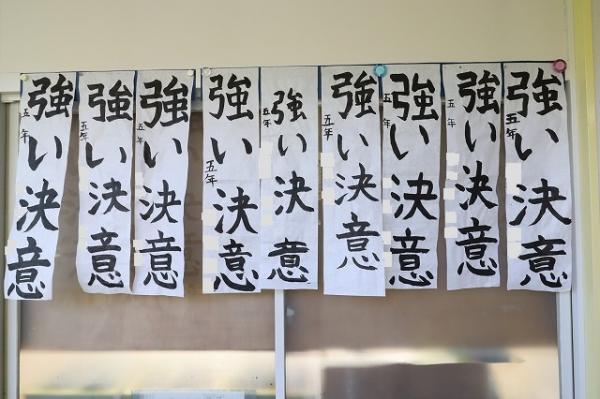 強い決意
五年
強い決意
五年
強い決意
五年
強い決意
五年
強い決意
五年
強い決意
五年
強い決意
五年
強い決意
五年
強い決意
五年